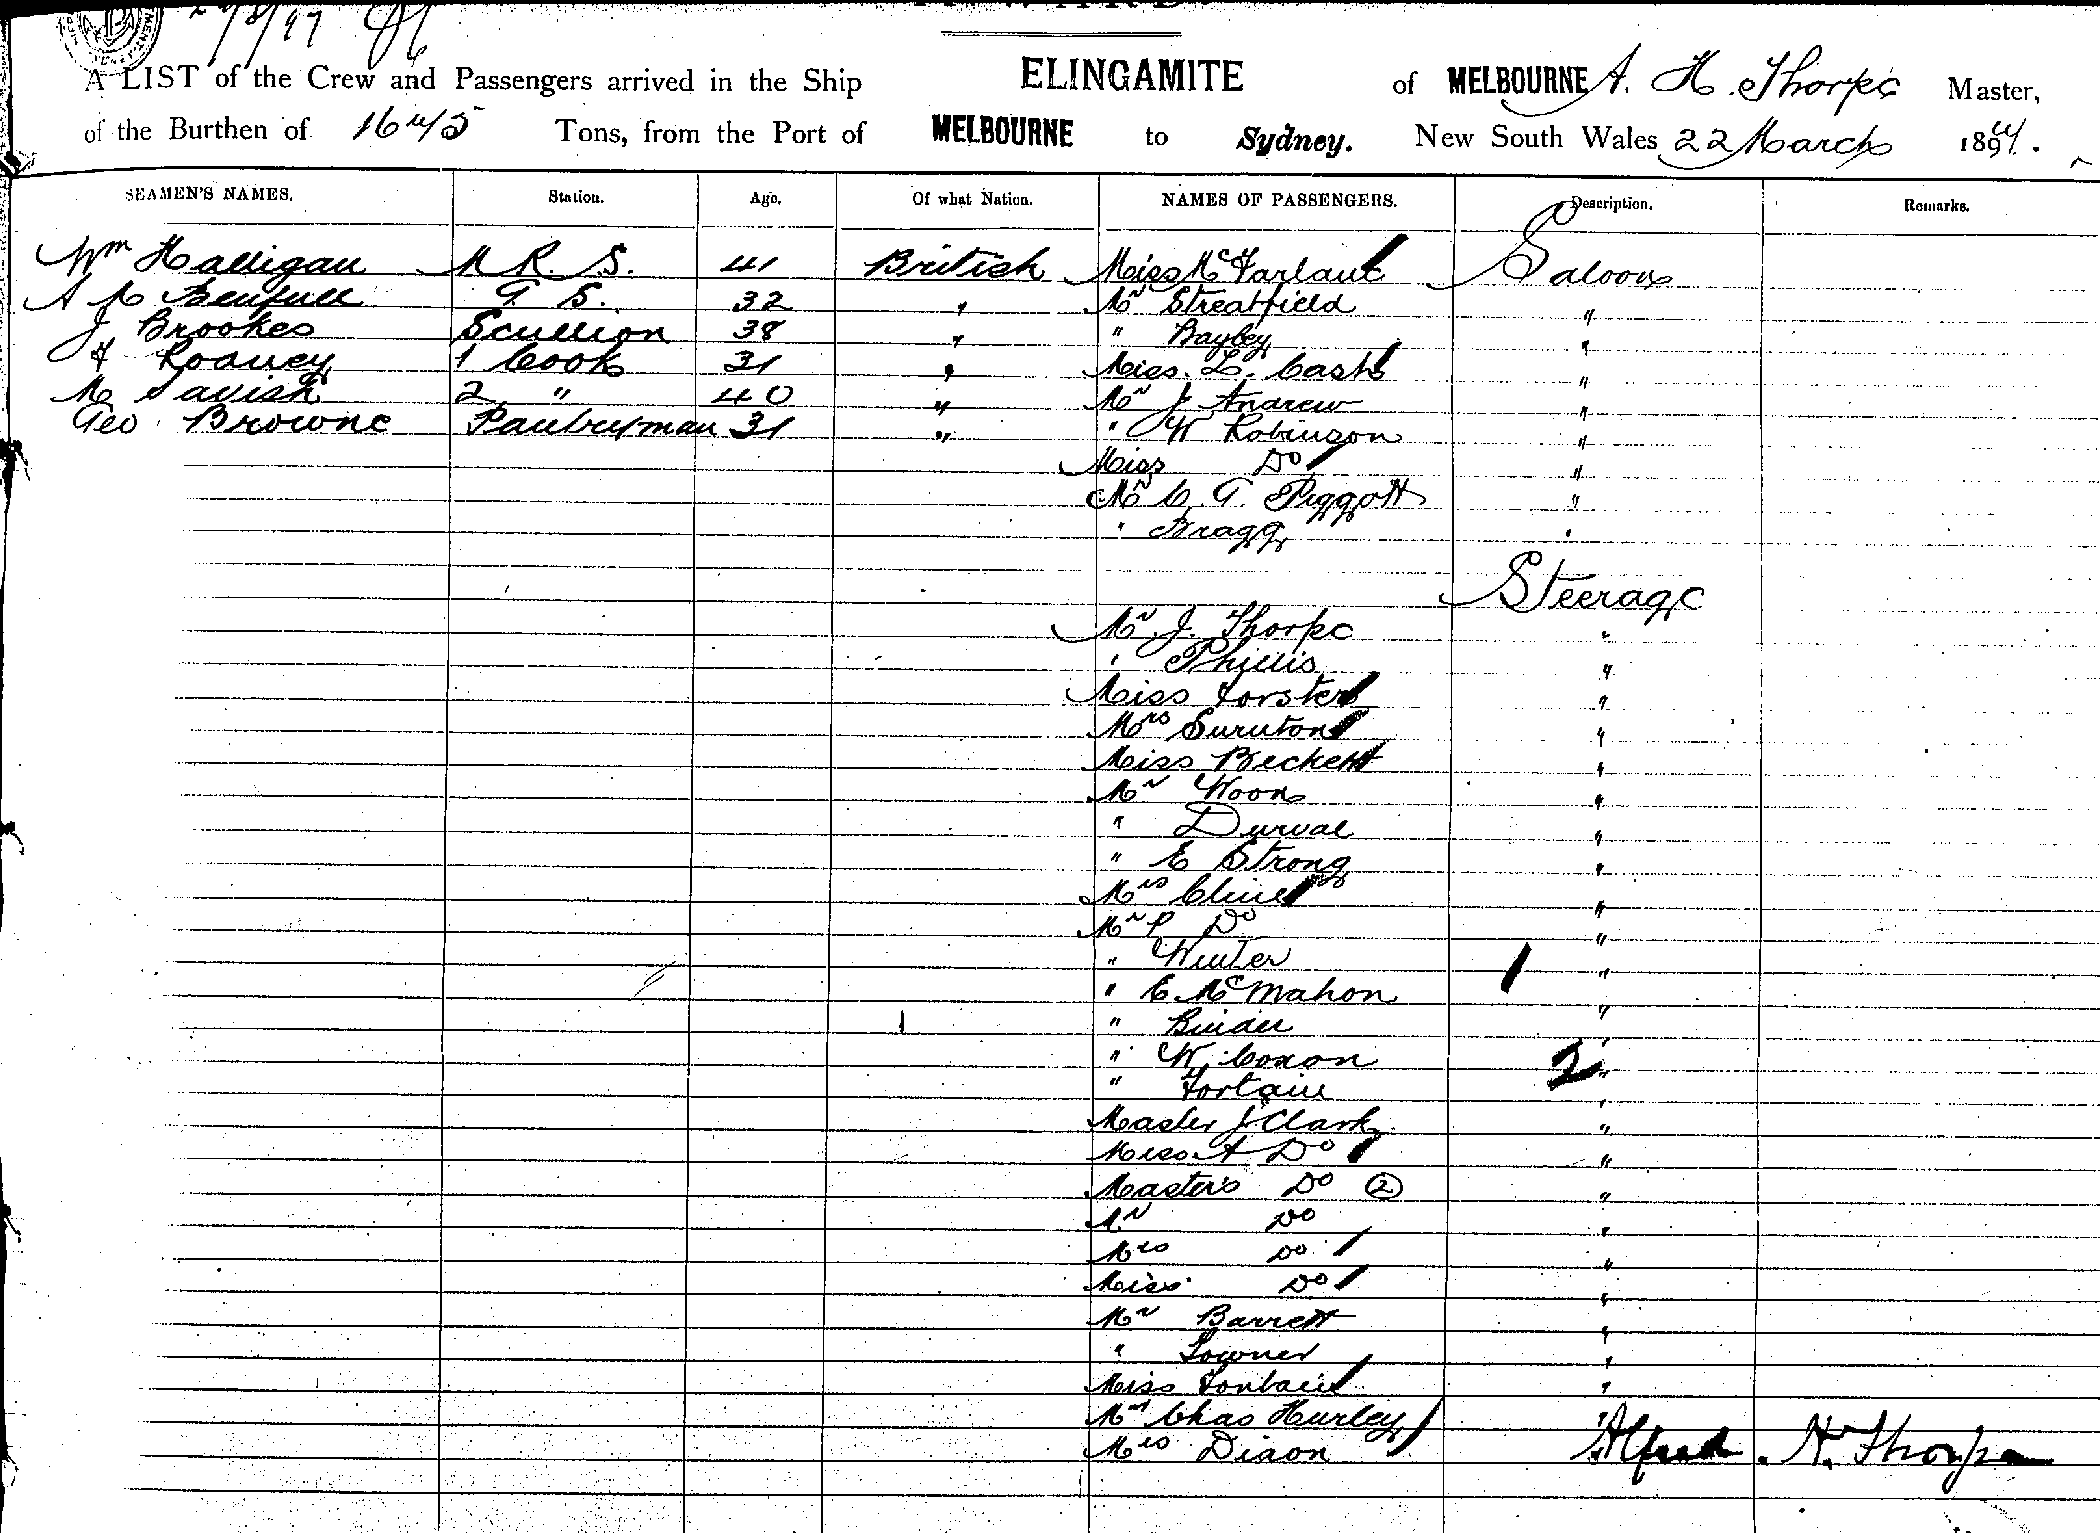 A LIST of the Crew and Passengers arrived in the Ship ELINGAMITE of MELBOURNE A. H. Thorpe Master,
of the Burthen of 1645 Tons, from the Port of MELBOURNE to Sydney. New South Wales 22 March 1894.
SEAMEN'S NAMES. Station. Age. Of what Nation. NAMES OF PASSENGERS. Description. Remarks.
Wm Halligan M R. S. 41 British Miss McFarlane Saloon
32 " Mr Streatfield "
J Brookes Scullion 38 " " Bayley "
1 Cook 31 " Miss. L. Cash "
2 " 40 " Mr J Andrew "
Geo Browne Pantryman 31 " " W Robinson "
Miss Do "
Mr C. G. Piggott "
" Bragg "
Steerage
Mr. J. Thorpe "
" Phillis "
Miss Forster "
Mrs "
Miss Beckett "
Mr Woon "
" Durval "
" E Strong "
Mrs Cline "
Mr P Do "
" Winter "
" C. McMahon "
" "
" W. Coxon 2 "
" Fortain "
Master J Clark "
Miss A Do "
Masters Do 2 "
Mr Do "
Mrs Do "
Miss Do "
Mr Barrett "
" "
Miss "
Mr Chas Hurley "
Mrs Dixon Alfred. H. Thorpe